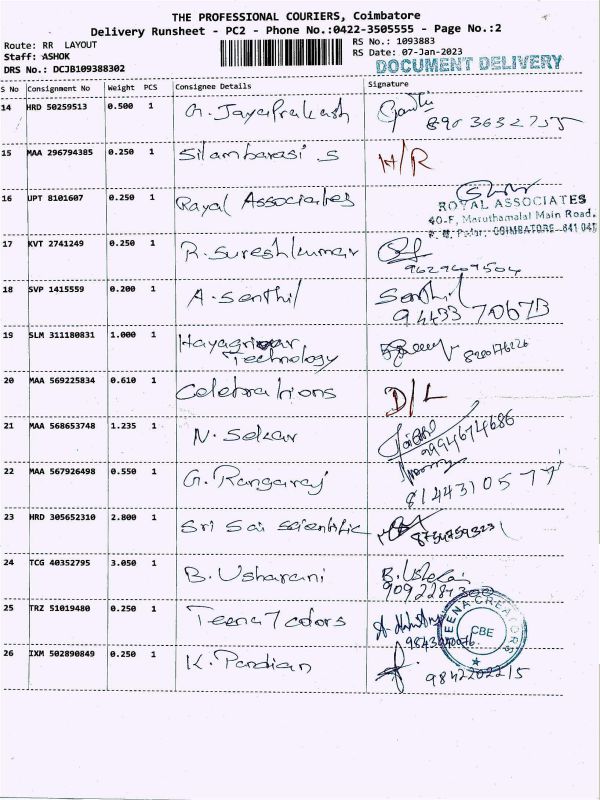 THE PROFESSIONAL COURIERS, Coimbatore
Delivery Runsheet - PC2 - Phone No.:0422-3505555 - Page No.:2
Route: RR LAYOUT
RS No.: 1093883
Staff: ASHOK
RS Date: 07-Jan-2023
DRS No.: DCJB109388302
DOCUMENT DELIVERY
S No Consignment No Weight PCS Consignee Details Signature
14 HRD 50259513 0.500 1 G. JayaPrakash
15 MAA 296794385 0.250 1 Silambarasi S H/R
16 UPT 8101607 0.250 1 Royal Associates
ROYAL ASSOCIATES
40-F, Maruthamalai Main Road,
COIMBATORE - 641 041
17 KVT 2741249 0.250 1 R. Sureshkumar 9629669504
18 SVP 1415559 0.200 1 A. Senthil Senthil
94433 70673
19 SLM 311180831 1.000 1 Hayagrivar
Technology 8220176126
20 MAA 569225834 0.610 1 Celebrations D/L
21 MAA 568653748 1.235 1 N. Sekar 9994674686
22 MAA 567926498 0.550 1 G. Rangaraj 8144310577
23 HRD 305652310 2.800 1 Sri Sai Scientific 8754759323
24 TCG 40352795 3.050 1 B. Usharani B. Usha
25 TRZ 51019480 0.250 1 Teena 7 colors
TEENA CREATORS
CBE
26 IXM 502890849 0.250 1 K. Pandian 9842202215